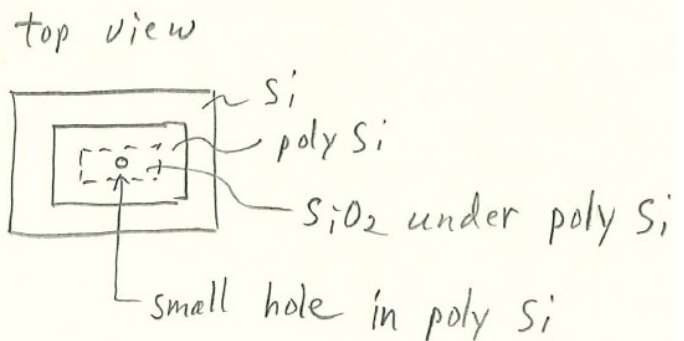 top view
Si
poly Si
SiO₂ under poly Si
small hole in poly Si